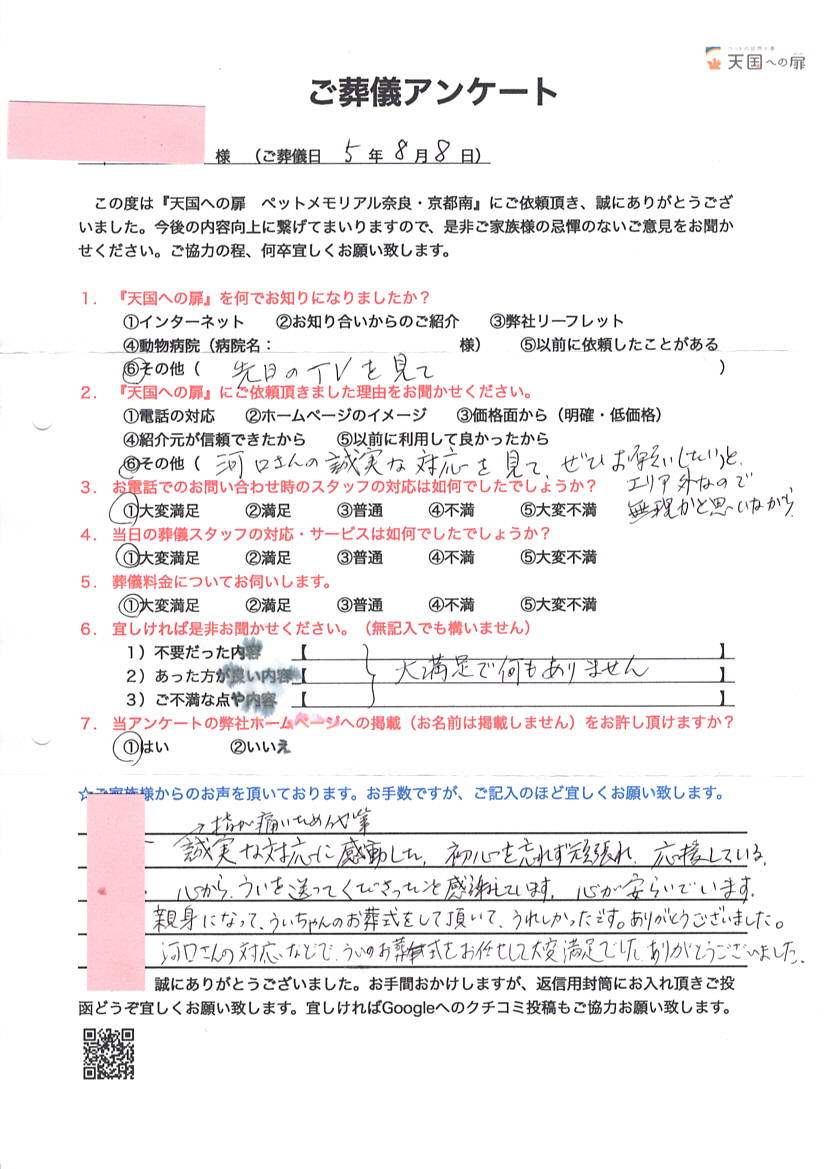 天国への扉
ご葬儀アンケート
様 （ご葬儀日 5 年 8 月 8 日）
この度は『天国への扉 ペットメモリアル奈良・京都南』にご依頼頂き、誠にありがとうござ
いました。今後の内容向上に繋げてまいりますので、是非ご家族様の忌憚のないご意見をお聞か
せください。ご協力の程、何卒宜しくお願い致します。
1． 『天国への扉』を何でお知りになりましたか？
①インターネット ②お知り合いからのご紹介 ③弊社リーフレット
④動物病院（病院名： 様） ⑤以前に依頼したことがある
⑥その他（ 先日のTVを見て ）
2． 『天国への扉』にご依頼頂きました理由をお聞かせください。
①電話の対応 ②ホームページのイメージ ③価格面から（明確・低価格）
④紹介元が信頼できたから ⑤以前に利用して良かったから
⑥その他（ 河口さんの誠実な対応を見て、ぜひお願いしたいと、
エリア外なので
無理かと思いながら
3． お電話でのお問い合わせ時のスタッフの対応は如何でしたでしょうか？
①大変満足 ②満足 ③普通 ④不満 ⑤大変不満
4． 当日の葬儀スタッフの対応・サービスは如何でしたでしょうか？
①大変満足 ②満足 ③普通 ④不満 ⑤大変不満
5． 葬儀料金についてお伺いします。
①大変満足 ②満足 ③普通 ④不満 ⑤大変不満
6． 宜しければ是非お聞かせください。（無記入でも構いません）
1）不要だった内容 【 】
2）あった方が良い内容【 大満足で何もありません 】
3）ご不満な点や内容 【 】
7． 当アンケートの弊社ホームページへの掲載（お名前は掲載しません）をお許し頂けますか？
①はい ②いいえ
☆ご家族様からのお声を頂いております。お手数ですが、ご記入のほど宜しくお願い致します。
→指が痛いため代筆
誠実な対応に感動した。初心を忘れず頑張れ。応援している。
心から、ういを送ってくださったこと感謝しています。心が安らいでいます。
親身になって、ういちゃんのお葬式をして頂いて、うれしかったです。ありがとうございました。
河口さんの対応などで、ういのお葬式をお任せして大変満足でした。ありがとうございました。
誠にありがとうございました。お手間おかけしますが、返信用封筒にお入れ頂きご投
函どうぞ宜しくお願い致します。宜しければGoogleへのクチコミ投稿もご協力お願い致します。